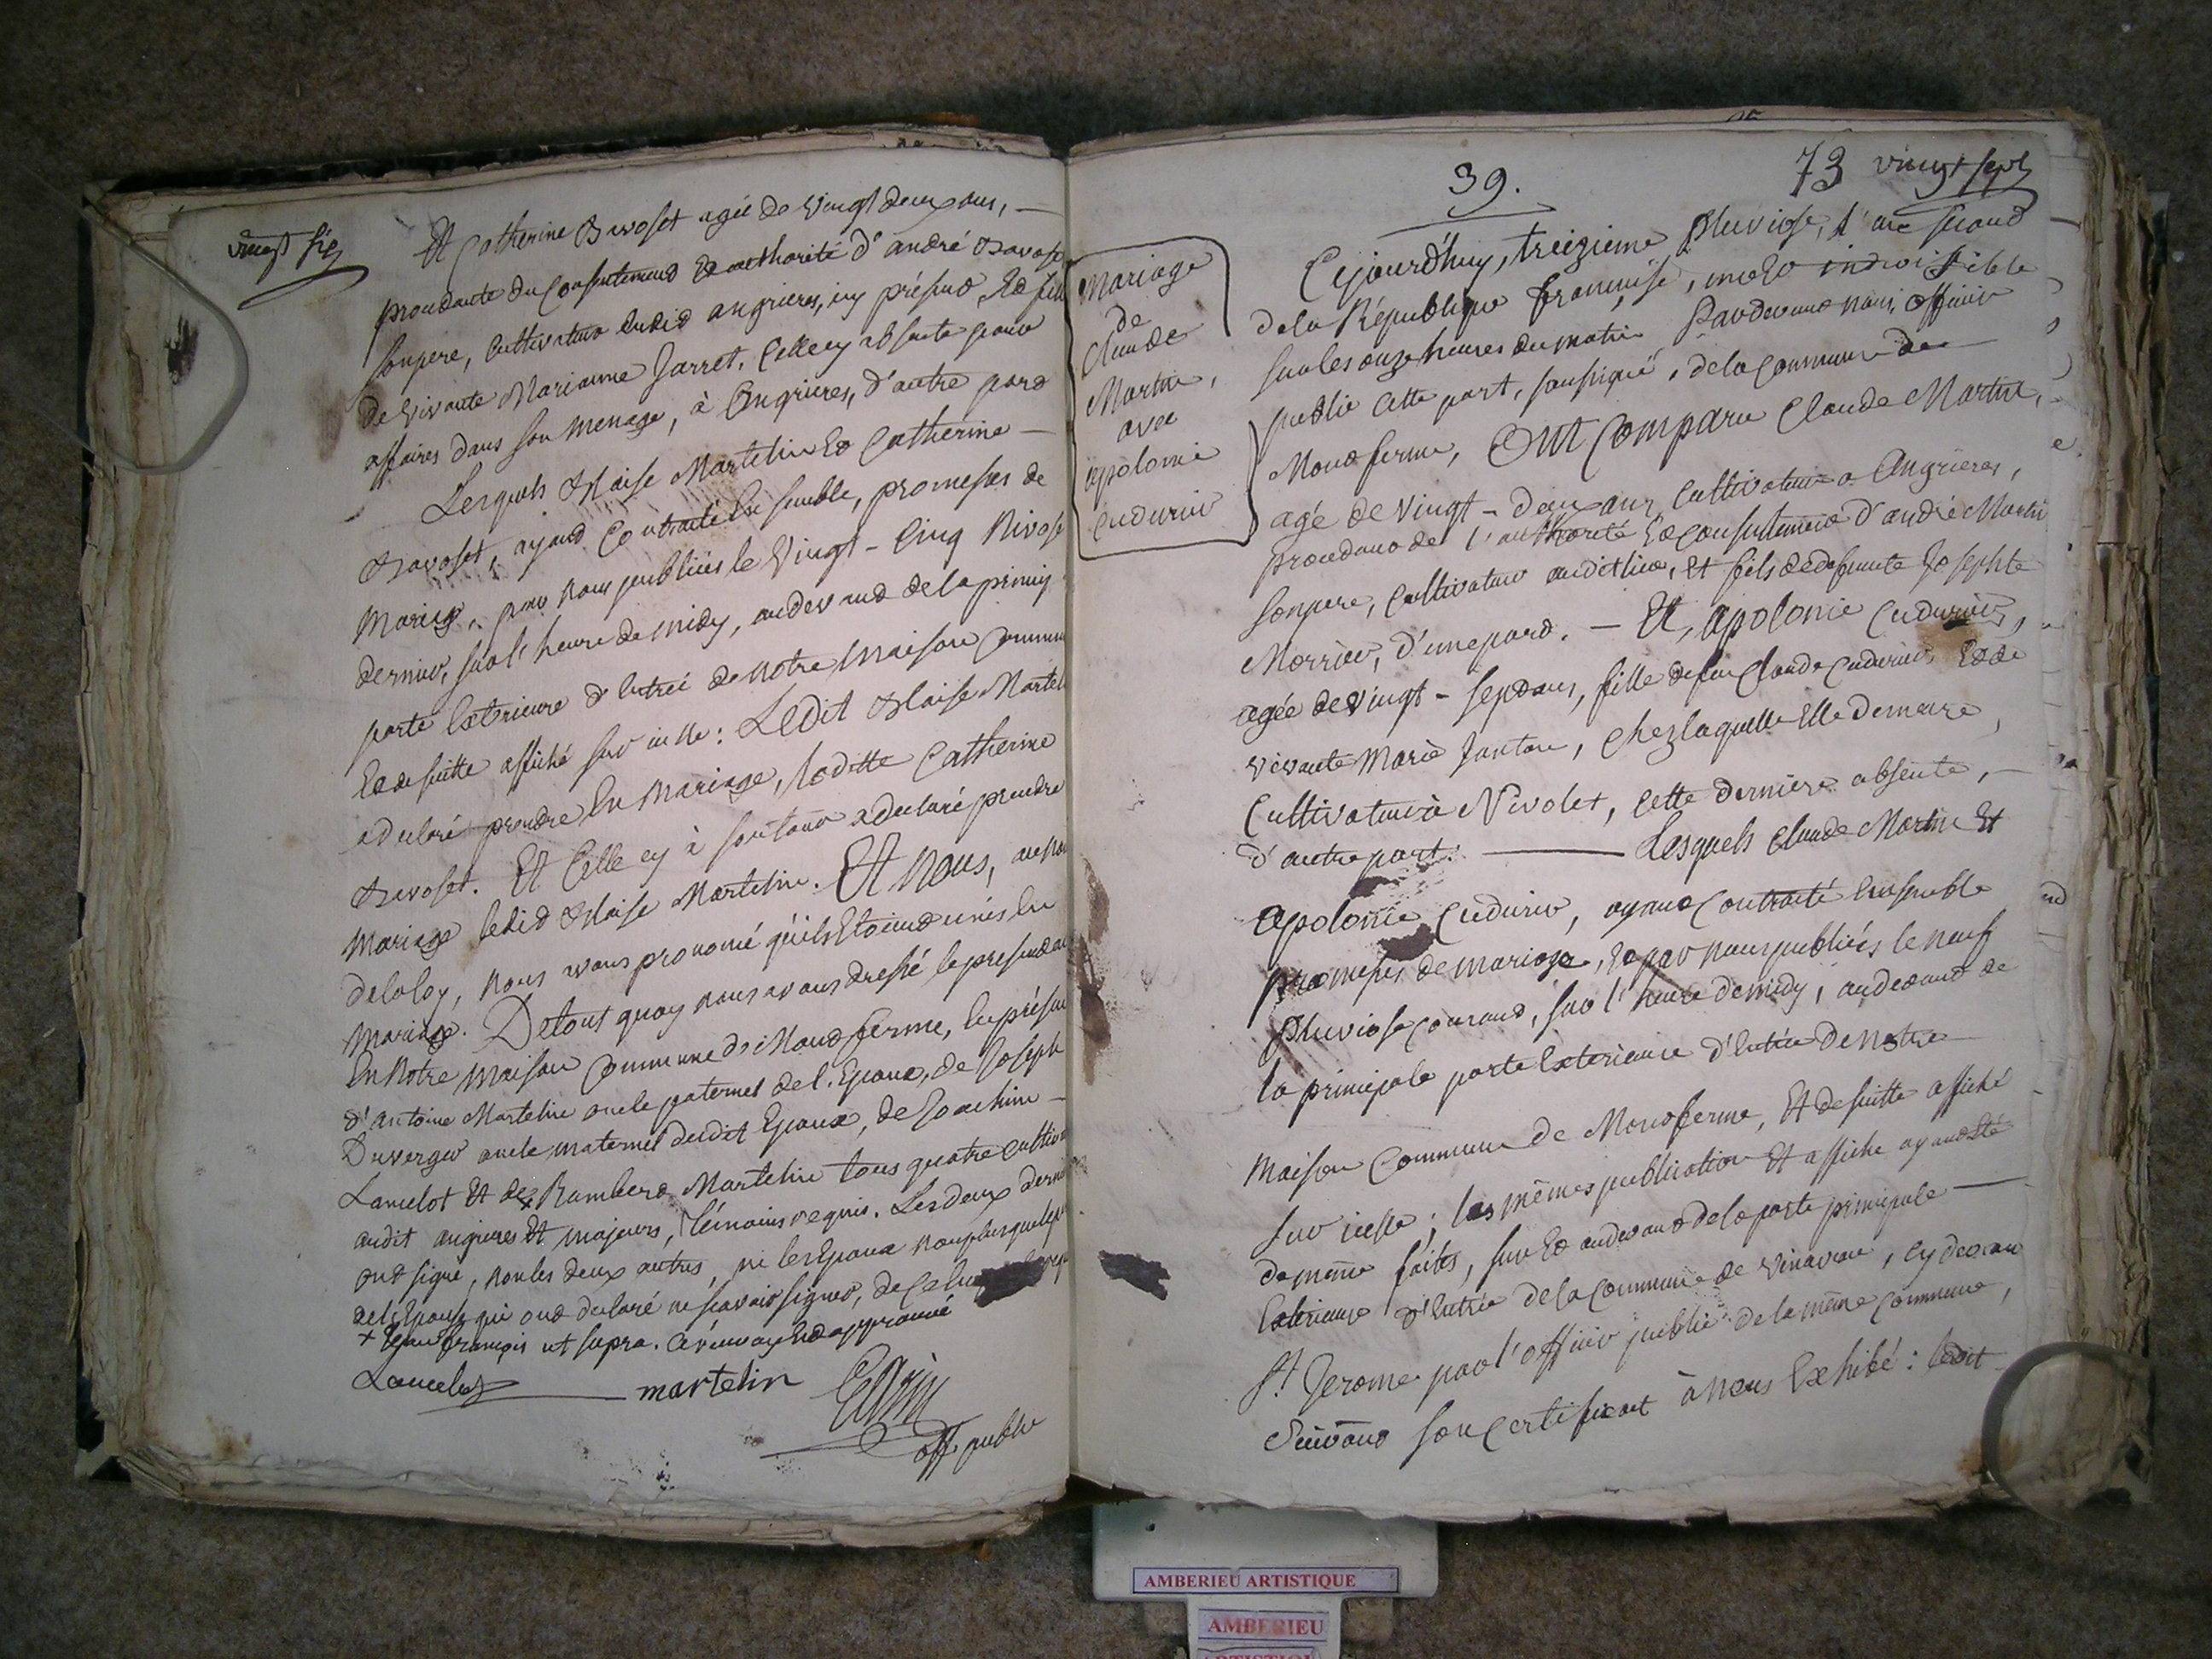 vingt six
Et Catherine Bavoset agée de vingt deux ans, —
procedante du consentement et authorité d'andré Bavoset
son pere, cultivateur dudit angrieres, icy présent, Et fille
de vivante Marianne Jarret, Celle cy absente pour
affaires dans son menage, à Angrieres, d'autre part
Lesquels Blaise Martelin Et Catherine —
Bavoset, ayant contracté En semble, promesses de
Mariage, par nous publiées le vingt - Cinq Nivose
dernier, sur l'heure de midy, au devant de la principale
porte Exterieure d'Entrée de notre maison commune
Et de suitte affiché sur icelle : Ledit Blaise Martelin
a declaré prendre En Mariage, laditte Catherine
Bavoset. Et Celle cy à son tour a declaré prendre
Mariage ledit Blaise Martelin. Et Nous, au nom
de la loy, nous avons prononcé qu'ils Etoient unis En
Mariage. De tout quoy nous avons dressé le present acte
En notre maison Commune de Montferme, En présence
d'antoine Martelin oncle paternel de l'Epoux, de Joseph
Duverger oncle maternel dudit Epoux, de Joachim —
Lancelot Et de + Rambert Martelin tous quatre cultivateurs
audit angrieres Et majeurs, témoins requis. Les deux derniers
ont signé, non les deux autres, ni les Epoux non plus que le pere
de l'Epouse qui ont declaré ne scavoir signer, de ce
+ Jean françois ut supra. Le renvoy Est approuvé
Lancelot martelin
off. public
39.
73 vingt sept
Mariage
de
Claude
Martin,
avec
apolonie
Cudurier
Cejourd'huy, treizieme Pluviose, l'an second
de la République françoise, une Et indivisible
sur les onze heures du matin Pardevant nous, officier
public Cette part, soussigné, de la commune de
Montferme, Ont Comparu Claude Martin,
agé de vingt - deux ans, cultivateur a Angrieres,
procedant de l'authorité Et consentement d'andré Martin
son pere, cultivateur audit lieu, Et fils de defunte Josephte
Morrier, d'une part. — Et, apolonie Cudurier,
agée de vingt - sept ans, fille de feu Claude Cudurier, Et de
vivante Marie Juntou, chez laquelle Elle demeure,
Cultivateur à Nivolet, cette derniere absente, —
d'autre part. — Lesquels Claude Martin Et
apolonie Cudurier, ayant contracté Ensemble
promesses de mariage, Et par nous publiées le neuf
Pluviose courant, sur l'heure de midy, au devant de
la principale porte Exterieure d'Entrée de notre
maison Commune de Montferme, Et de suitte affiché
sur icelle ; les mêmes publication Et affiche ayant Eté
de même faites, sur Et au devant de la porte principale —
Exterieure d'Entrée de la Commune de Vinavau, cy devant
St. Jerome par l'officier public de la même commune,
Suivant son certificat à nous Exhibé : ledit
AMBERIEU ARTISTIQUE
AMBERIEU